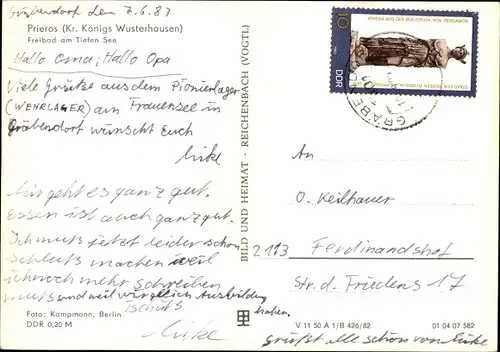 Gräbendorf den 7.6.83
Prieros (Kr. Königs Wusterhausen)
Freibad am Tiefen See
Hallo Oma, Hallo Opa
Viele Grüße aus dem Pionierlager
(WEHRLAGER) am Frauensee in
Gräbendorf wünscht Euch
Eike
Mir geht es ganz gut.
Essen ist auch ganz gut.
Ich muß jetzt leider schon
schluß machen weil
ich noch mehr schreiben
muß und weil wir gleich Ausbildung
haben.
Tschüß
Eike
grüßt alle schön von Eike
Foto: Kampmann, Berlin
DDR 0,20 M
BILD UND HEIMAT · REICHENBACH (VOGTL)
V 11 50 A 1/B 426/82
01 04 07 582
10
DDR
STAATLICHE MUSEEN
GRÄBEN
An
O. Keilhauer
2113 Ferdinandshof
Str. d. Friedens 17